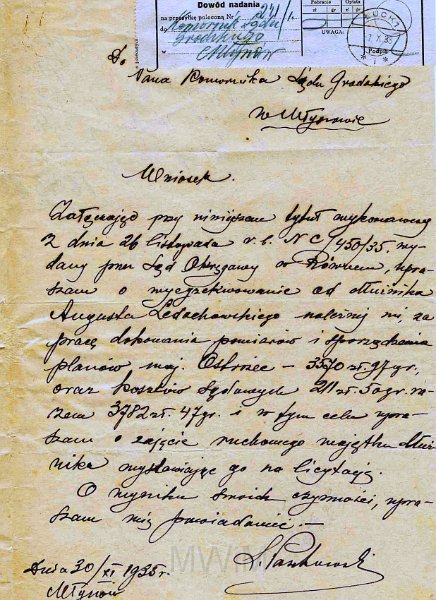 Dowód nadania
Pobranie Opłata
na przesyłkę poleconą Nr
zł. gr. zł. gr.
do Komornik Sądu
grodzkiego
Młynów
UWAGA:
ŁUCK 1
Podpis
Do
Pana Komornika Sądu Grodzkiego
w Młynowie
Wniosek.
Załączając przy niniejszem tytuł wykonawczy
z dnia 26 listopada r. b. N C/450/35, wy-
dany przez Sąd Okręgowy w Równem, upra-
szam o wyegzekwowanie od dłużnika
Augusta Ledóchowskiego należnej mi, za
pracę dokonania pomiarów i sporządzenia
planów maj. Ostrzec – 3570 zł. 97 gr.
oraz kosztów sądowych 211 zł. 50 gr. ra-
zem 3782 zł. 47 gr. i w tym celu upra-
szam o zajęcie ruchomego majątku dłuż-
nika wystawiając go na licytację.
O wyniku swoich czynności, upra-
szam mię powiadomić. –
Dnia 30/XI 1935 r.
Młynów
MWM